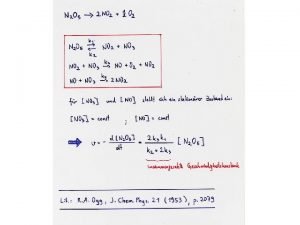 N₂O₅ → 2NO₂ + ½ O₂
N₂O₅ ⇌ NO₂ + NO₃
k₁
k₂
NO₂ + NO₃ →k₃ NO + O₂ + NO₂
NO + NO₃ →k₄ 2NO₂
für [NO₃] und [NO] stellt sich ein stationärer Zustand ein:
[NO₃] = const ; [NO] = const
⟹ v = - d[N₂O₅]/dt = 2k₃k₁/(k₂+2k₃) [N₂O₅]
zusammengesetzte Geschwindigkeitskonstante
Lit.: R.A. Ogg, J. Chem. Phys. 21 (1953), p. 2079